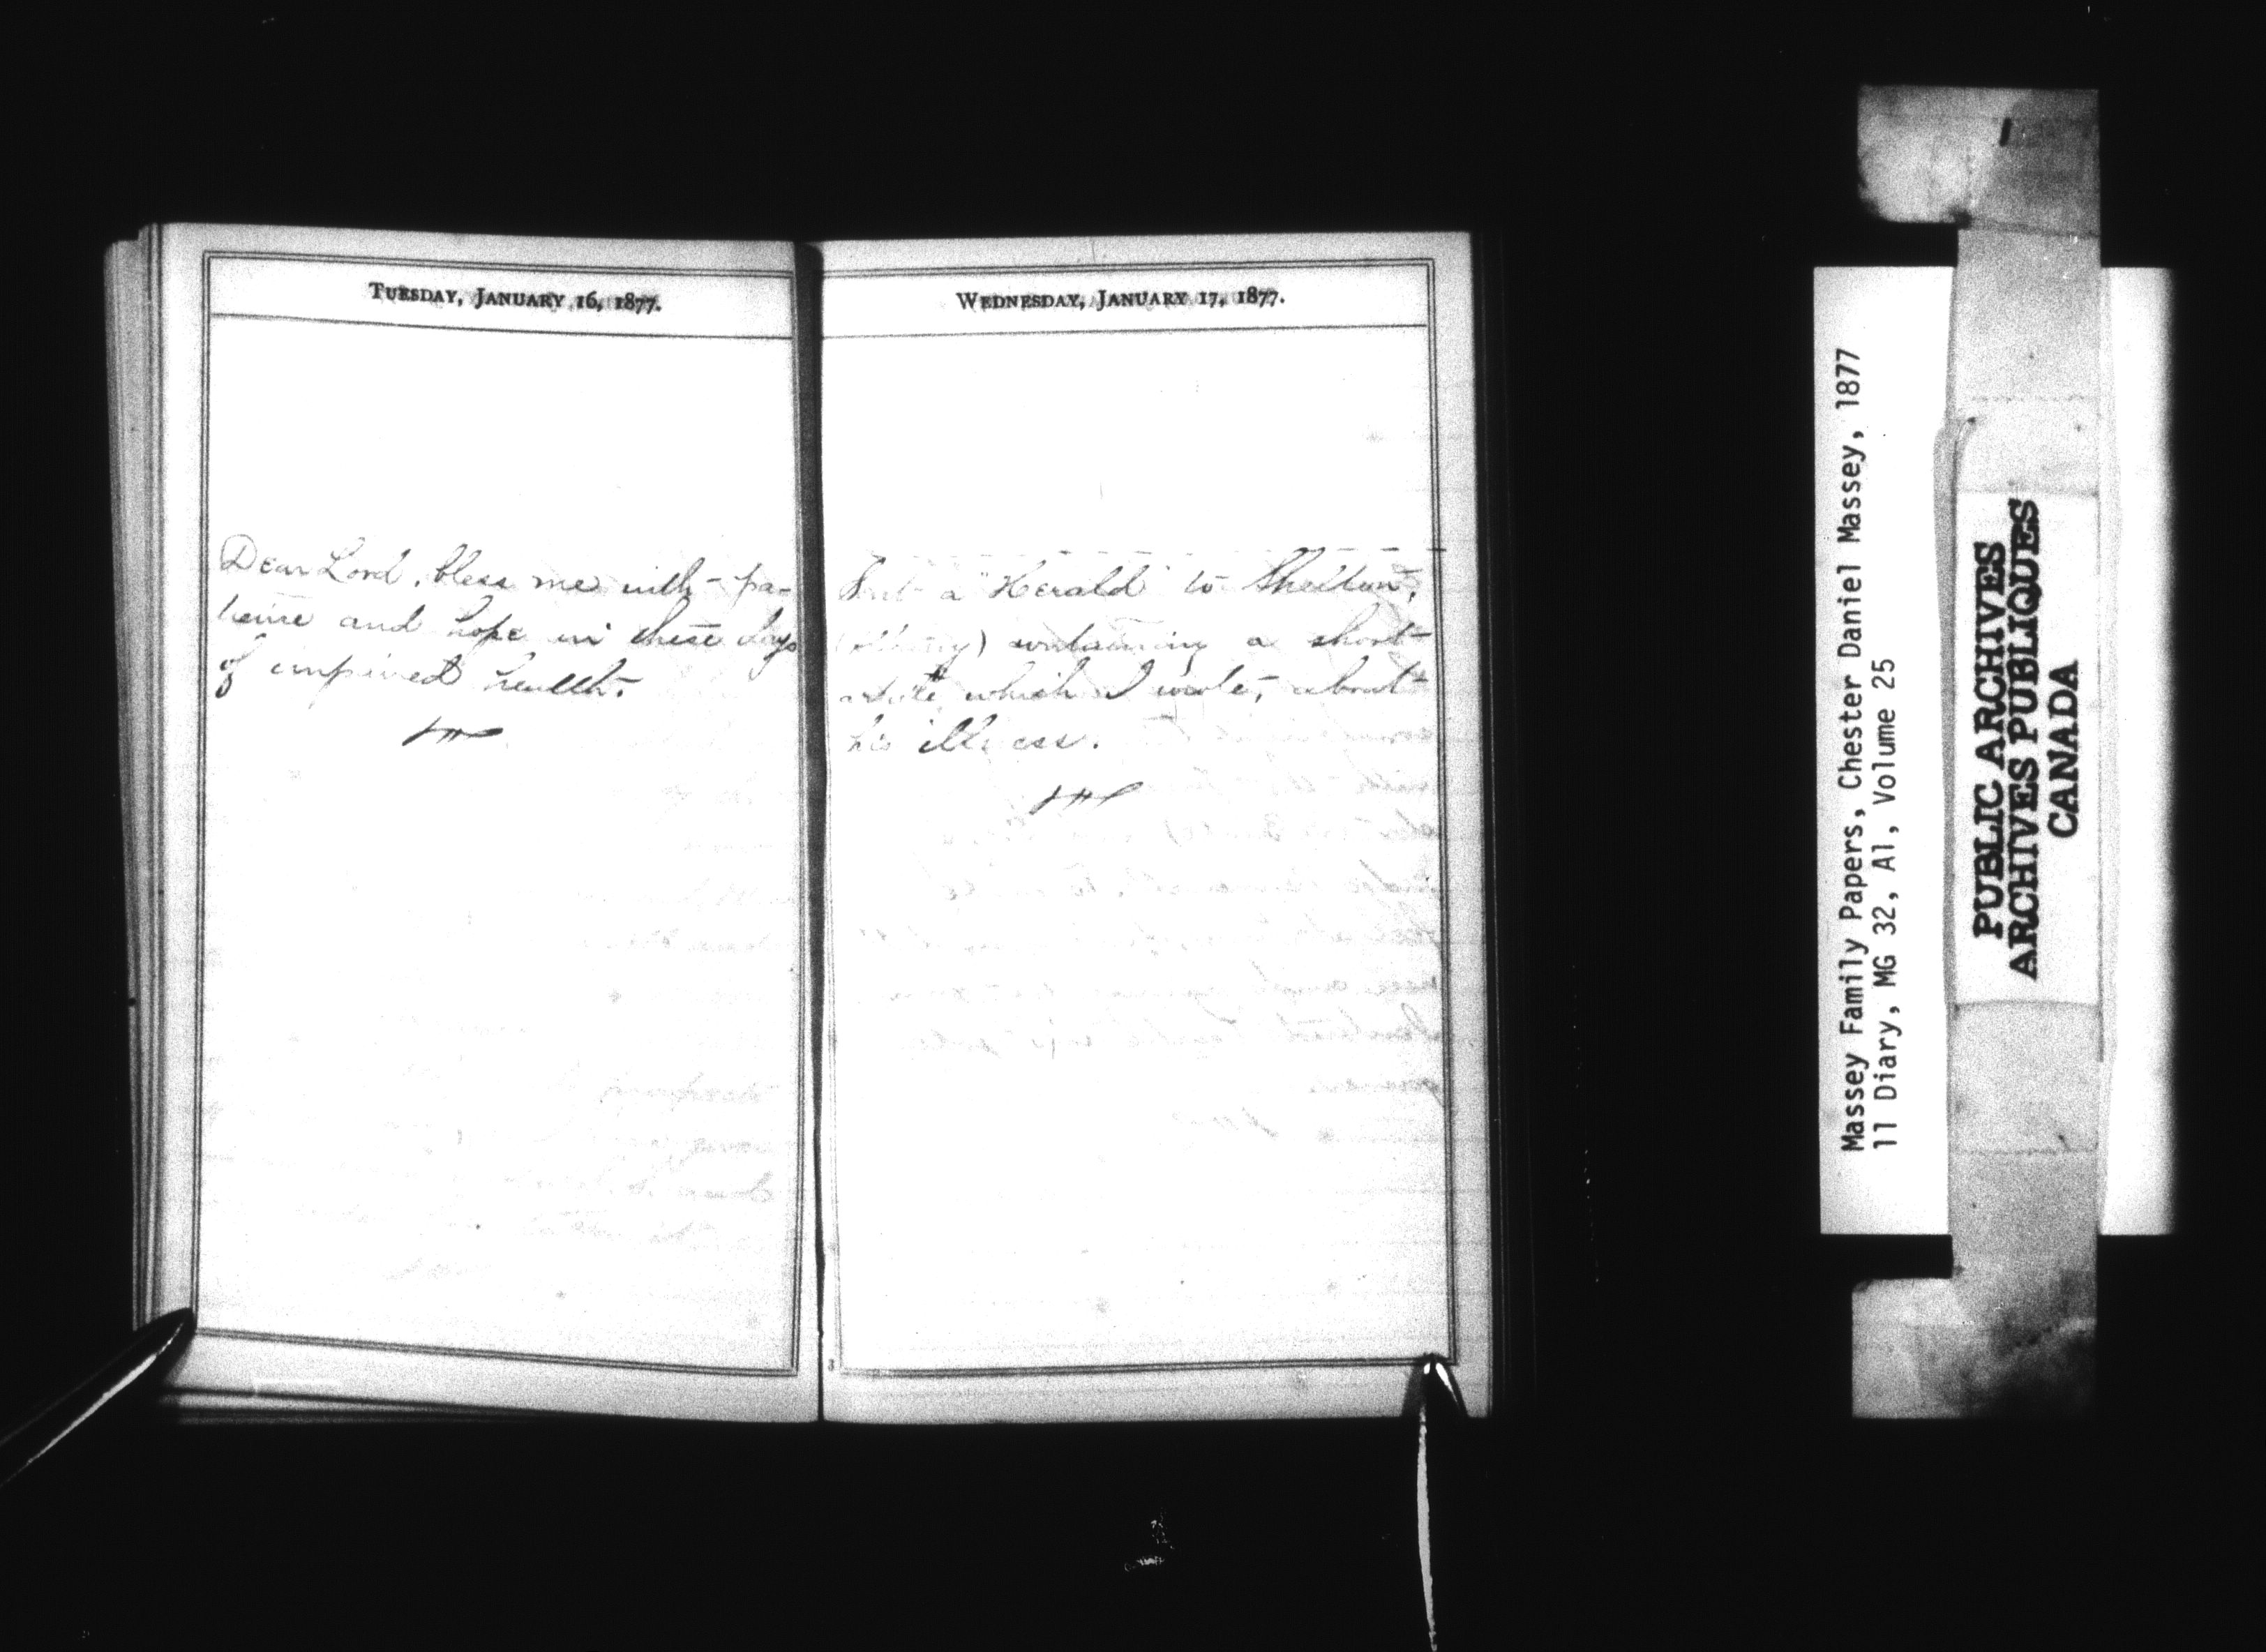 TUESDAY, JANUARY 16, 1877.
Dear Lord, bless me with pa-
tience and hope in these days
of impaired health.
WEDNESDAY, JANUARY 17, 1877.
Sent a "Herald" to Shelton,
(Albany) containing a short
article which I wrote, about
his illness.
Massey Family Papers, Chester Daniel Massey, 1877
11 Diary, MG 32, A1, Volume 25
PUBLIC ARCHIVES
ARCHIVES PUBLIQUES
CANADA